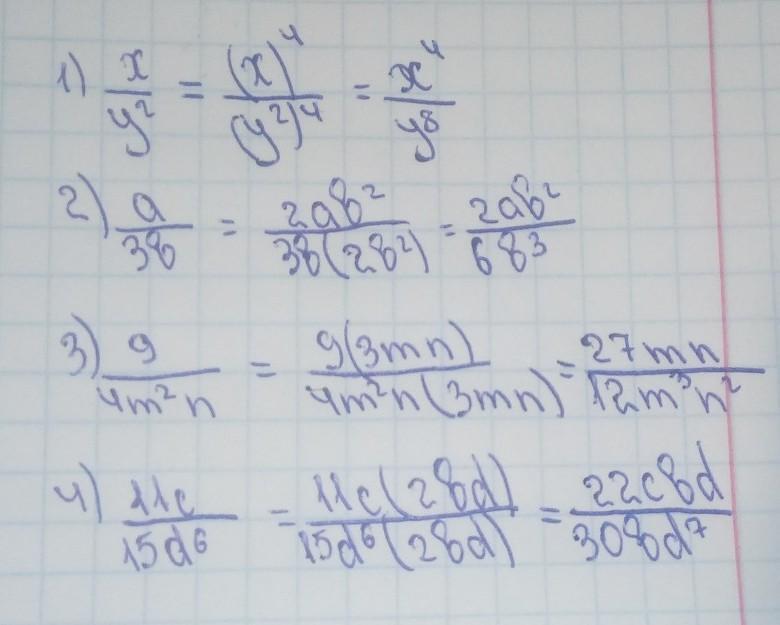 1) x/y² = (x)⁴/(y²)⁴ = x⁴/y⁸
2) a/3b = 2ab²/3b(2b²) = 2ab²/6b³
3) 9/4m²n = 9(3mn)/4m²n(3mn) = 27mn/12m³n²
4) 11c/15d⁶ = 11c(2bd)/15d⁶(2bd) = 22cbd/30bd⁷